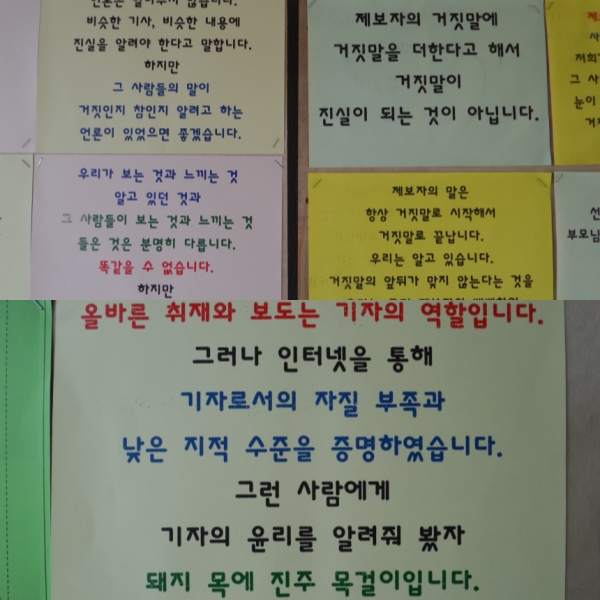 언론은 알아주지 않습니다.
비슷한 기사, 비슷한 내용에
진실을 알려야 한다고 말합니다.
하지만
그 사람들의 말이
거짓인지 참인지 알려고 하는
언론이 있었으면 좋겠습니다.
제보자의 거짓말에
거짓말을 더한다고 해서
거짓말이
진실이 되는 것이 아닙니다.
저희
그 사
눈이
우리가 보는 것과 느끼는 것
알고 있던 것과
그 사람들이 보는 것과 느끼는 것
들은 것은 분명히 다릅니다.
똑같을 수 없습니다.
하지만
제보자의 말은
항상 거짓말로 시작해서
거짓말로 끝납니다.
우리는 알고 있습니다.
거짓말의 앞뒤가 맞지 않는다는 것을
부모님
올바른 취재와 보도는 기자의 역할입니다.
그러나 인터넷을 통해
기자로서의 자질 부족과
낮은 지적 수준을 증명하였습니다.
그런 사람에게
기자의 윤리를 알려줘 봤자
돼지 목에 진주 목걸이입니다.